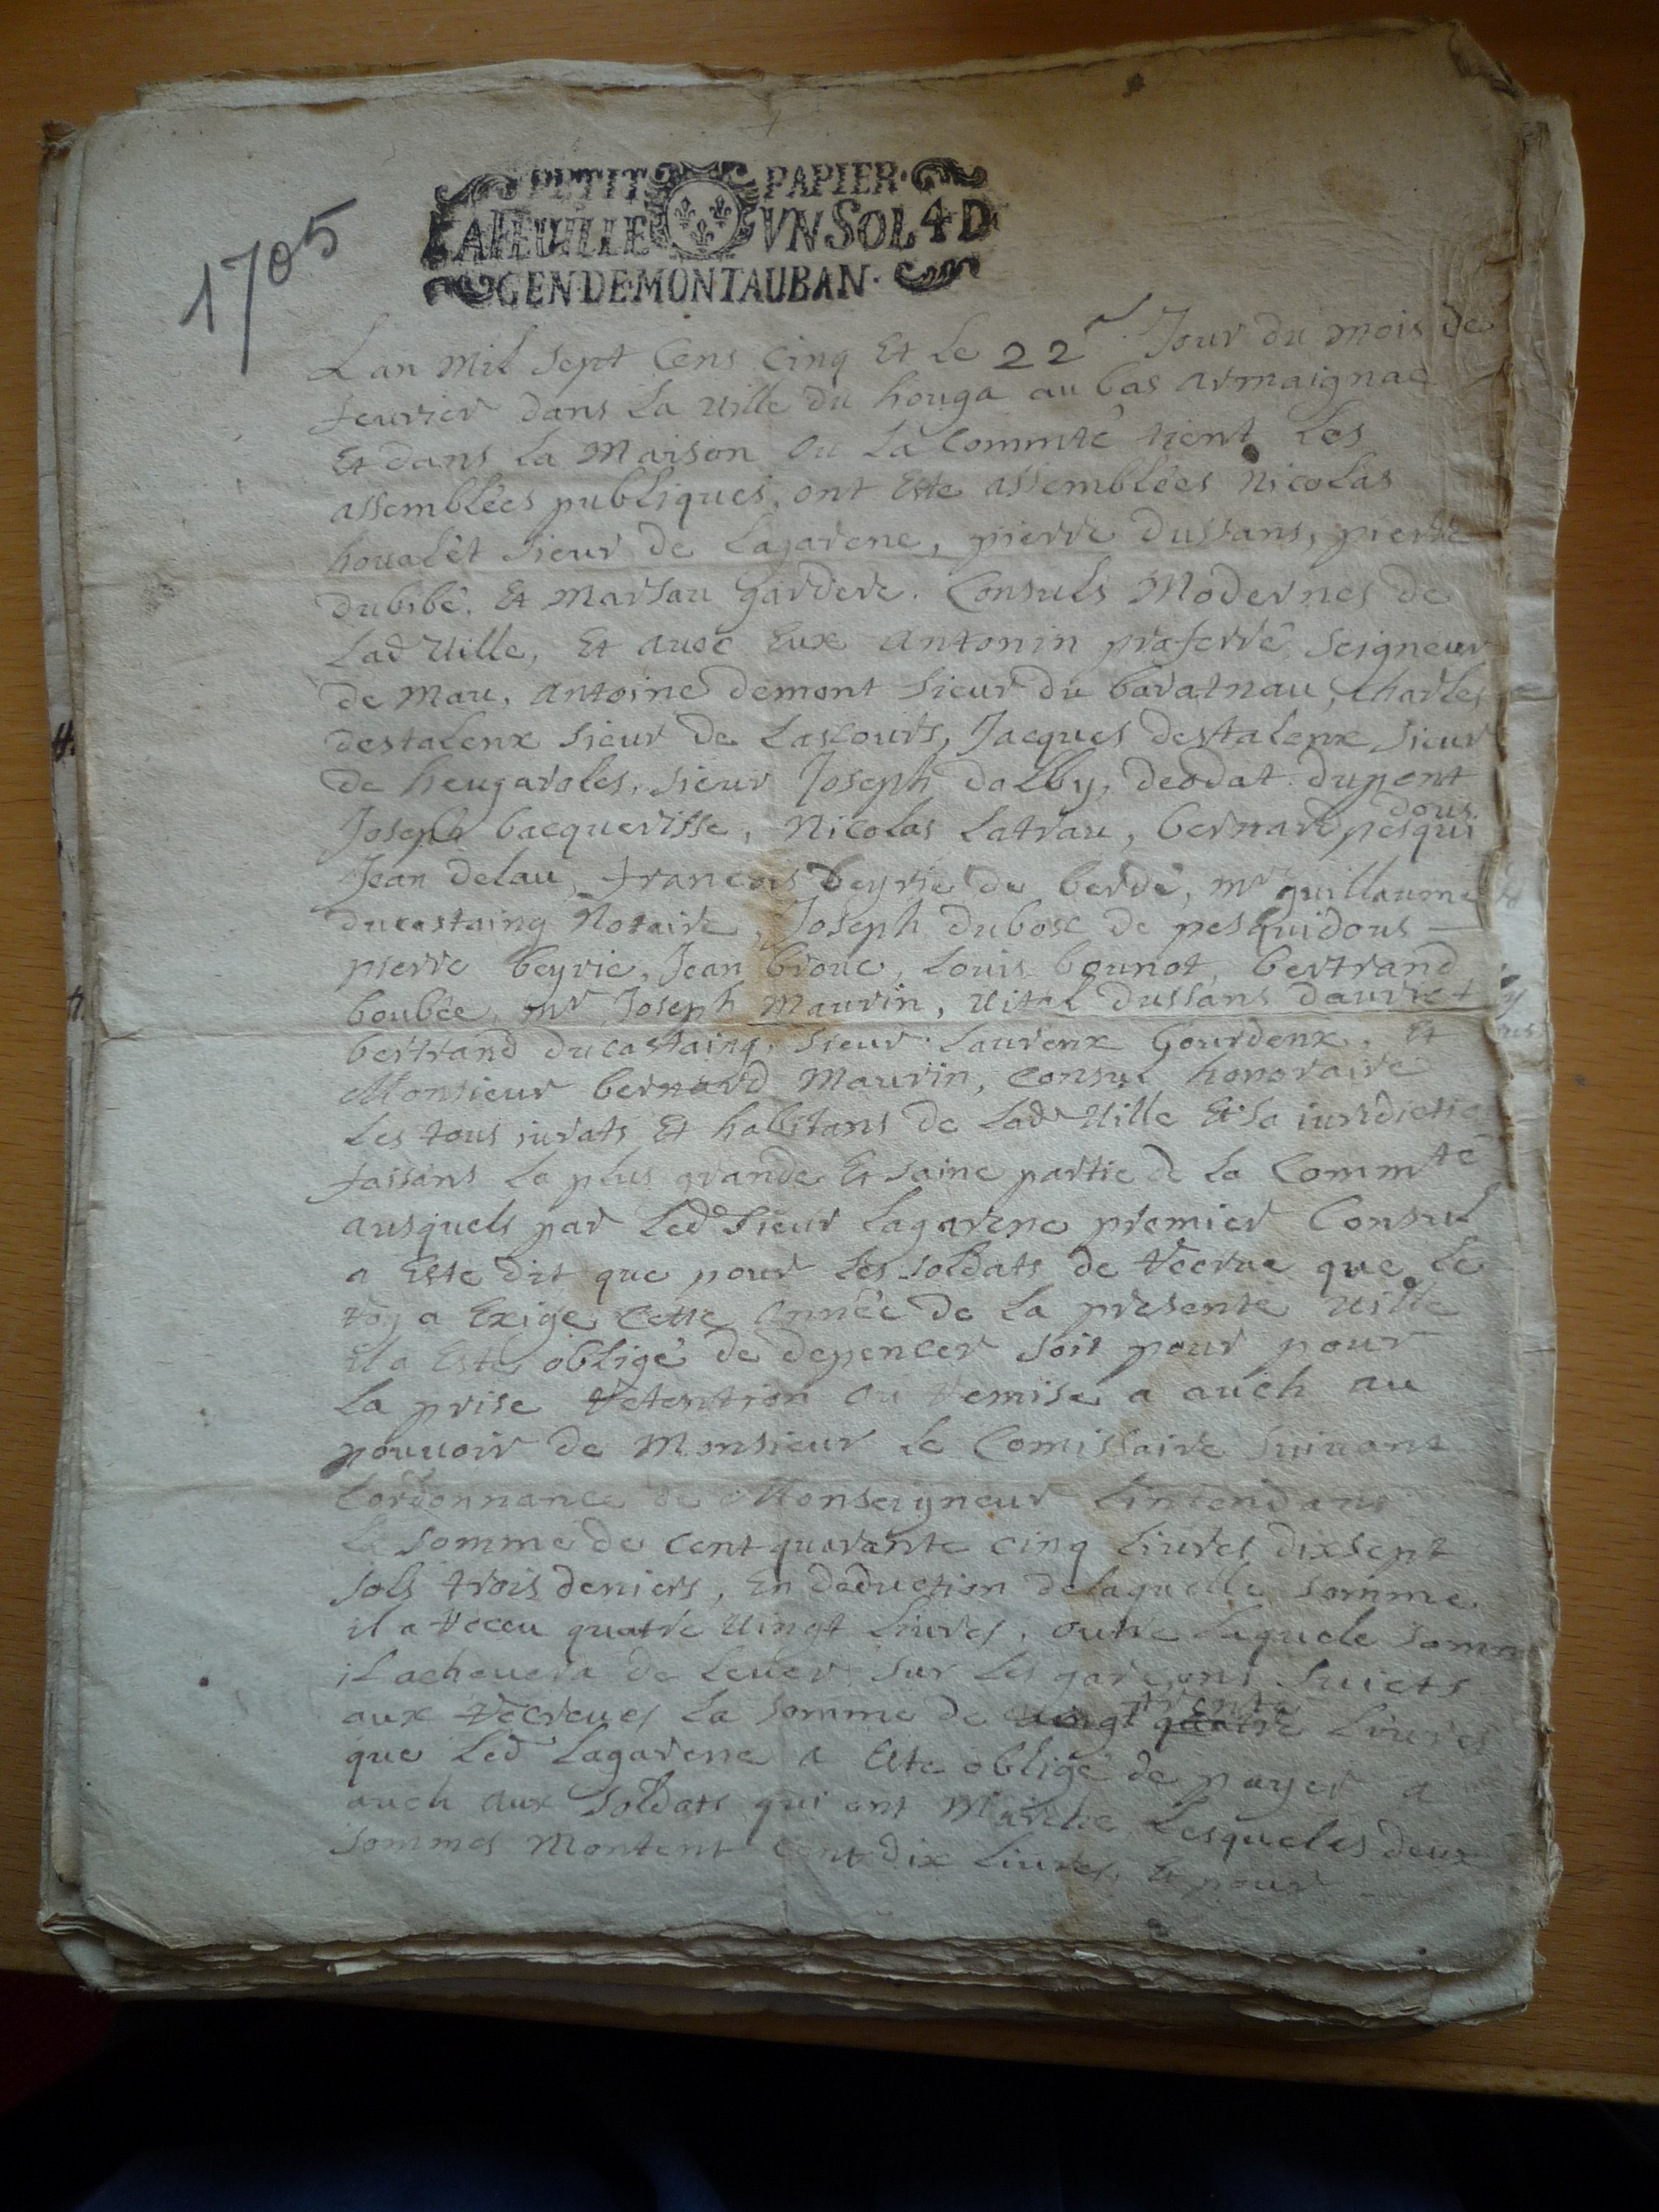 1705
PETIT PAPIER
LA FEUILLE VN SOL 4 D
GEN·DE·MONTAUBAN·
Lan mil sept Cens cinq Et le 22e Jour du mois de
feurier dans la uille du houga au bas armaignac
Et dans la maison ou la Commté tient les
assemblées publiques, ont Este assemblées Nicolas
houalêt sieur de Lagarene, pierre dussans, pierre
dubibé, Et marsau gardere. Consuls Modernes de
Lad uille, Et auec Eux antonin praferré seigneur
de mau, antoine demont sieur du baratnau, charles
destalenx sieur de Lascours, Jacques destalenx sieur
de heugaroles, sieur Joseph dalby, deodat dupont
Joseph bacquerisse, Nicolas Latrau, bernard pesqui
dous
Jean delau, francois beyrie de berdé, mr guillaume
ducastaing Notaire, Joseph dubosc de pesquidous —
pierre beyrie, Jean brouc, Louis bounot, bertrand
boubée, mr Joseph Maurin, uital dussans dauriet
bertrand ducastaing, sieur Laurenx Gourdenx, Et
Monsieur bernard Maurin, consul honoraire
Les tous jurats Et habitans de Lad uille Et sa iuridictio
faisans la plus grande Et saine partie de la Commté
ausquels par Led sieur Lagarene premier Consul
a Este dit que pour les soldats de recrue que le
roy a Exigé cette année de la presente uille
il a Esté obligé de depencer soit pour pour
la prise retention ou remise a auch au
pouuoir de Monsieur le Comissaire suiuant
Lordonnance de Monseigneur Lintendant
la somme de cent quarante cinq liures dixsept
sols trois deniers, En deduction de laquelle somme
il a receu quatre uingt liures, outre laquele somm
il acheuera de leuer sur les garçons suiets
aux recreues la somme de uingt quatre trente liures
que Led Lagarene a Este obligé de payer a
auch aux soldats qui ont marché Lesqueles deux
sommes montent cent dix liures, Et pour